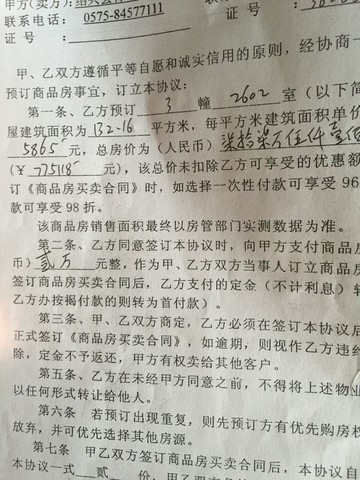 甲方(卖方):绍兴
联系电话: 0575-84577111
证 号 : 号 :
甲、乙双方遵循平等自愿和诚实信用的原则,经协商一
预订商品房事宜,订立本协议:
第一条、乙方预订 3 幢 2602 室(以下简
屋建筑面积为 132.16 平方米,每平方米建筑面积单价
5865 元,总房价为(人民币)柒拾柒万伍仟壹佰
(¥ 775118 元),该总价未扣除乙方可享受的优惠额
订《商品房买卖合同》时,如选择一次性付款可享受 96
款可享受 98 折。
该商品房销售面积最终以房管部门实测数据为准。
第二条、乙方同意签订本协议时,向甲方支付商品房
币)贰万 元整,作为甲、乙双方当事人订立商品房
签订商品房买卖合同后,乙方支付的定金(不计利息)转
乙方办按揭付款的则转为首付款)。
第三条、甲、乙双方商定,乙方必须在签订本协议后
正式签订《商品房买卖合同》,如逾期,则视作乙方违约
除,定金不予返还,甲方有权卖给其他客户。
第五条、乙方在未经甲方同意之前,不得将上述物业
以任何形式转让给他人。
第六条 若预订出现重复,则先预订方有优先购房权
放弃,并可优先选择其他房源。
第七条 甲乙双方签订商品房买卖合同后,本协议自
本协议一式 贰 份,甲乙双方各